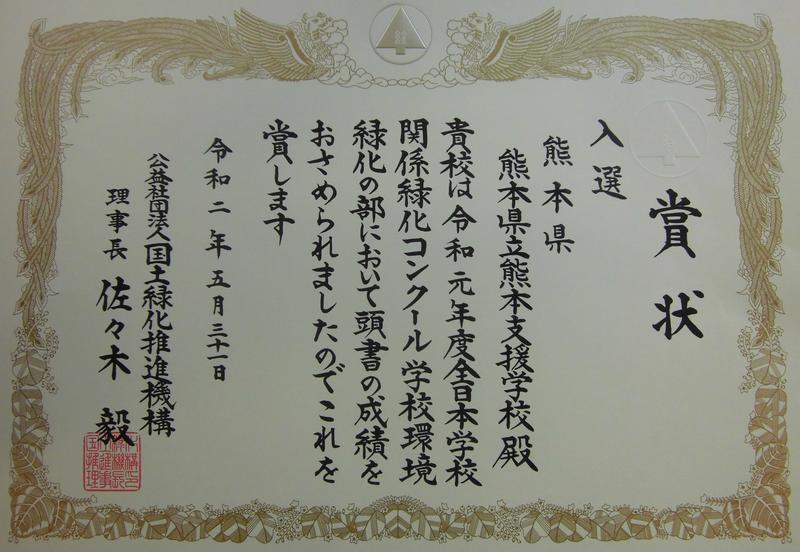 賞状
入選
熊本県
熊本県立熊本支援学校殿
貴校は令和元年度全日本学校
関係緑化コンクール学校環境
緑化の部において頭書の成績を
おさめられましたのでこれを
賞します
令和二年五月三十一日
公益社団法人国土緑化推進機構
理事長 佐々木毅